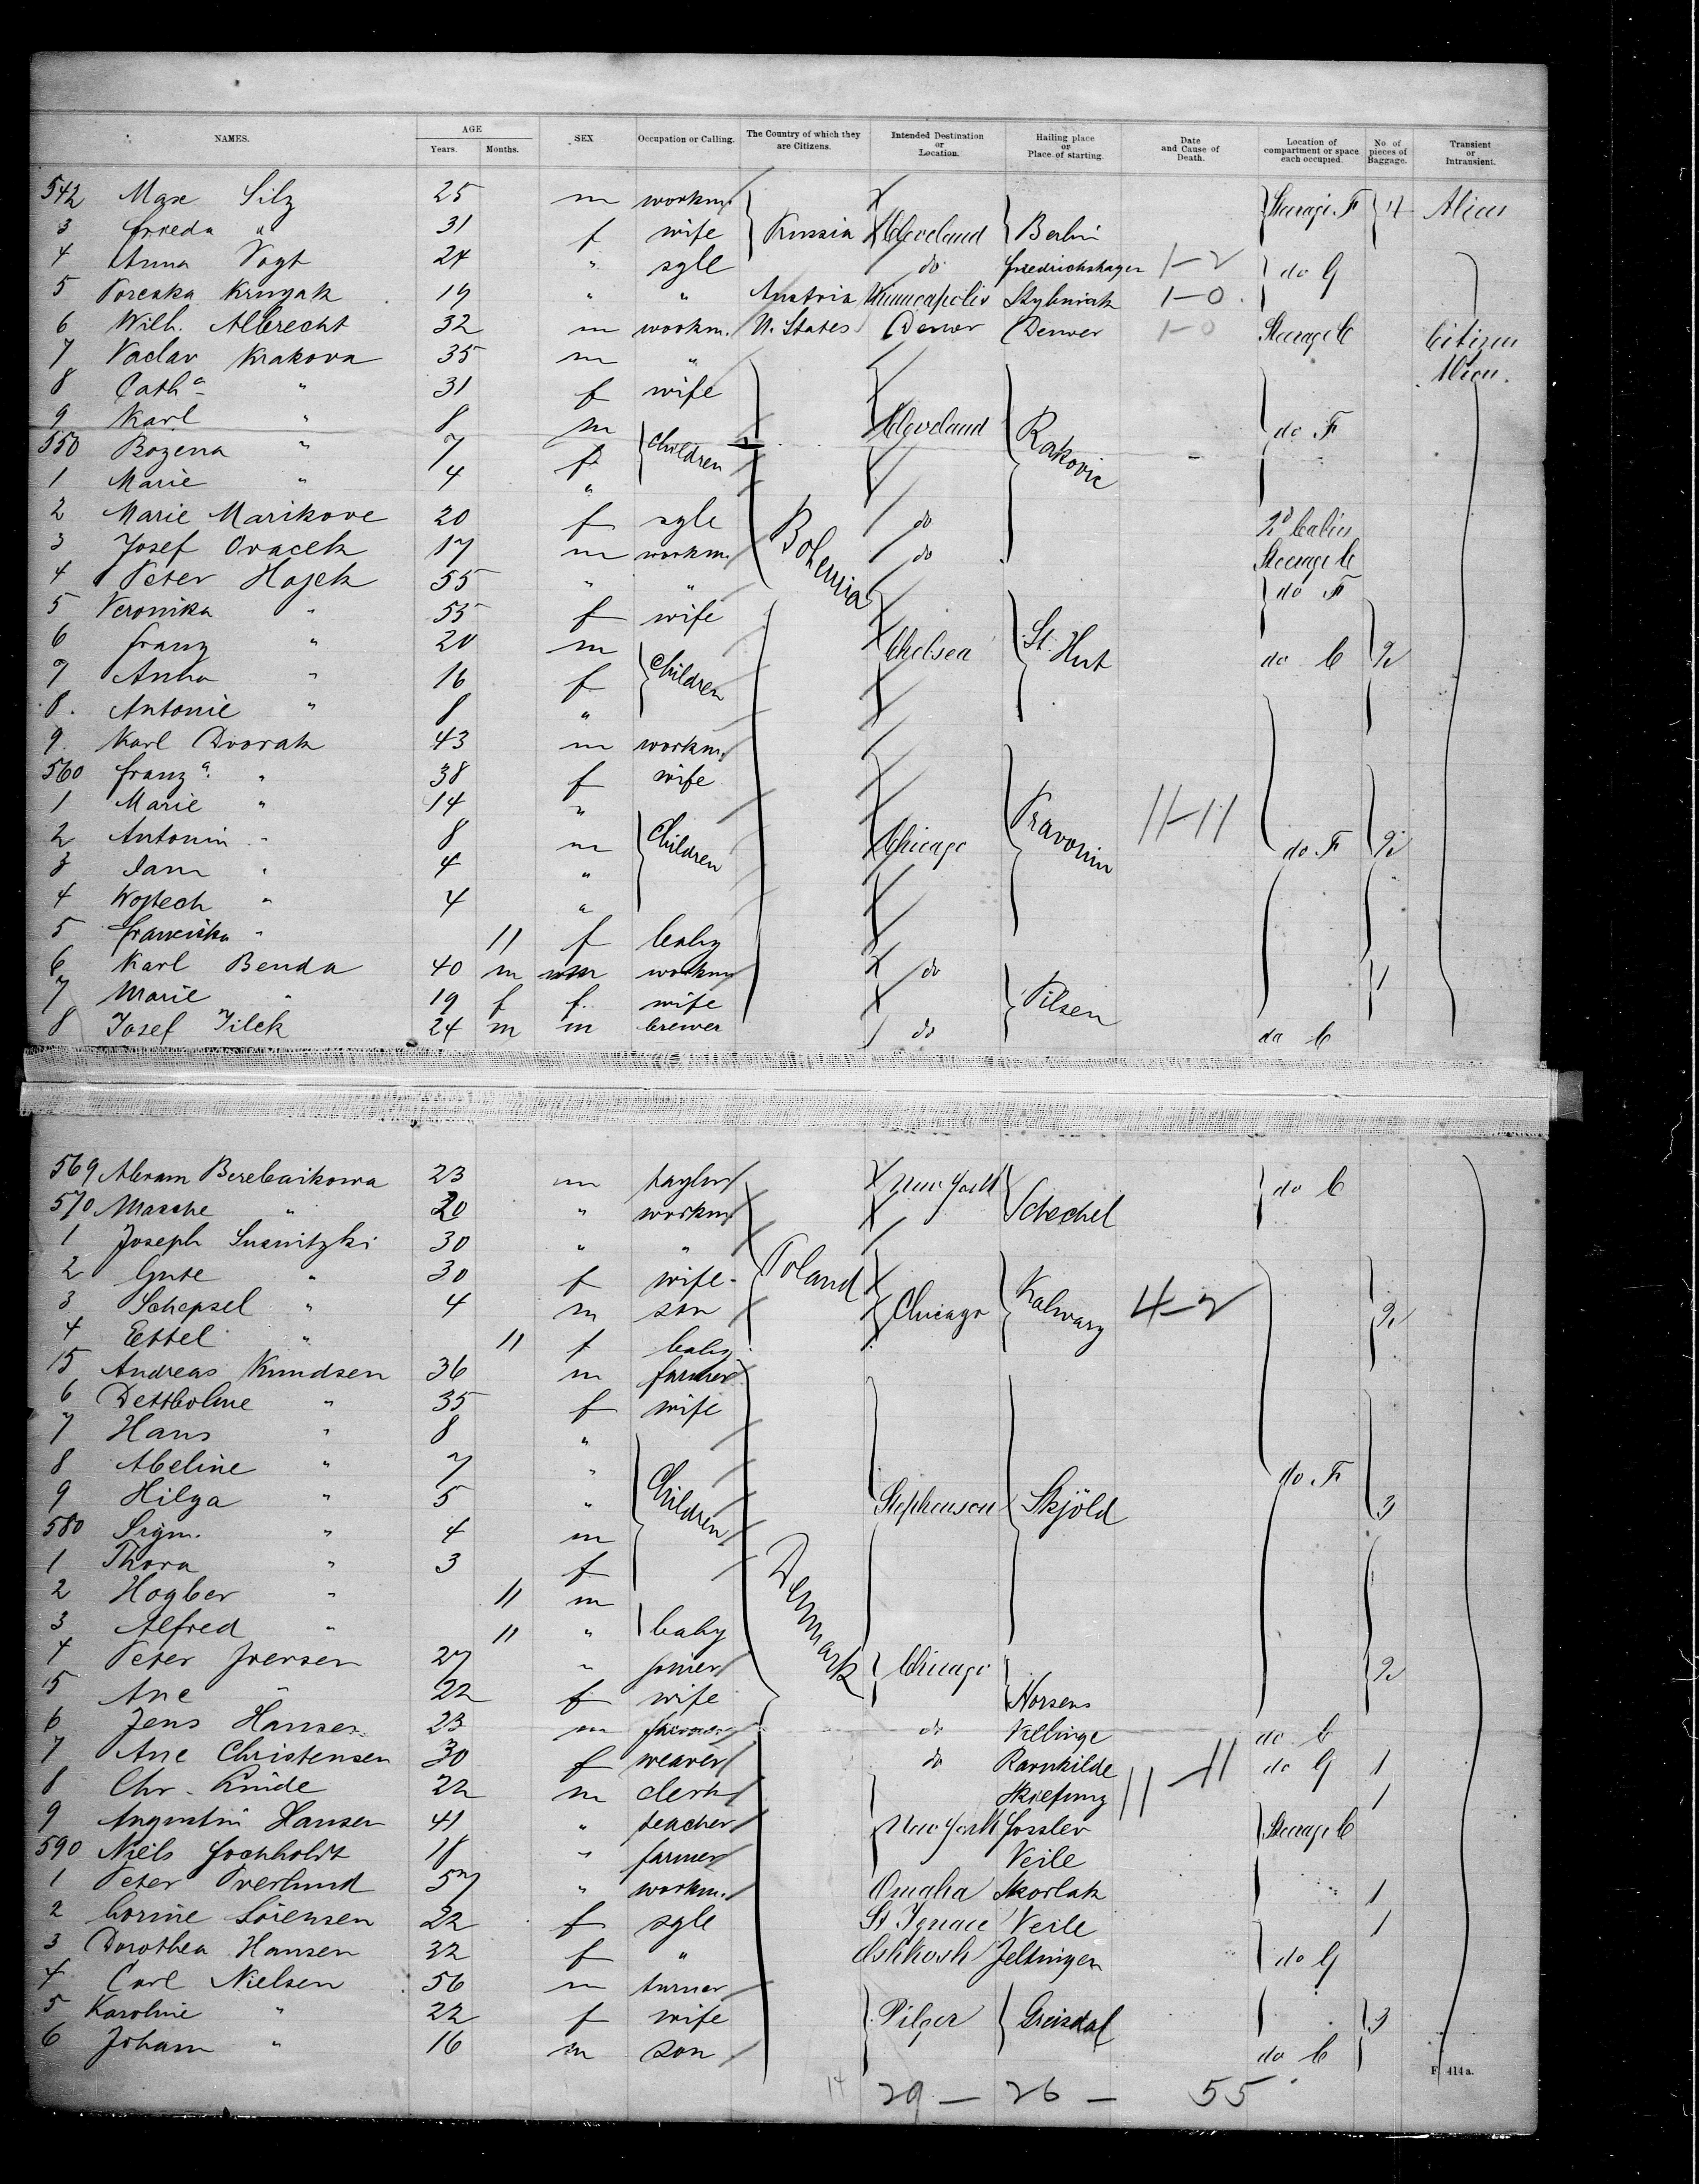 NAMES. AGE SEX Occupation or Calling. The Country of which they are Citizens. Intended Destination or Location. Hailing place or Place of starting. Date and Cause of Death. Location of compartment or space each occupied. No. of pieces of Baggage. Transient or Intransient.
Years. Months.
542 Max Silz 25 m workm. Steerage F 4 Alien
3 Frieda " 31 f wife Russia Cleveland Berlin
4 Anna Vogt 24 " sgle do Friedrichshagen 1-2 do G
5 Krugak 19 " " Austria Minneapolis 1-0
6 Wilh. Albrecht 32 m workm. U. States Denver Denver 1-0 Steerage C Citizen
7 Vaclav Krakova 35 m " Alien.
8 Cath a 31 f wife
9 Karl " 8 m Cleveland do F
550 Bozena " 7 f Children Rakovic
1 Marie " 4 "
2 Marie Marikove 20 f sgle do 2d Cabin
3 Josef Ovacek 17 m workm. Bohemia do Steerage C
4 Peter Hajek 55 " " do F
5 Veronika " 55 f wife
6 Franz " 20 m Chelsea St. Hut do C 2
7 Anna " 16 f Children
8. Antonie " 8 "
9. Karl Dvorak 43 m workm.
560 Franz a. " 38 f wife
1 Marie " 14 " Pravonin 11-11
2 Antonin " 8 m Children Chicago do F 2
3 Jan " 4 "
4 Wojtech " 4 "
5 Franciska " 11 f baby
6 Karl Benda 40 m m workm do 1
7 Marie " 19 f f. wife Pilsen
8 Josef Jilek 24 m m brewer do do C
569 Abram Berebaikowa 23 m taylor New York do C
570 Masche " 20 " workm Schechel
1 Joseph Susnitzki 30 " "
2 Gute " 30 f wife Poland
3 Schepsel " 4 m son Chicago Kalwary 4-2 2
4 Ettel " 11 f baby
15 Andreas Knudsen 36 m farmer
6 Dettboline " 35 f wife
7 Hans " 8 "
8 Abeline " 7 " do F
9 Hilga " 5 " Children Stephenson Skjöld 3
580 Sigm. " 4 m
1 Thora " 3 f Denmark
2 Hogber " 11 m
3 Alfred " 11 " baby
4 Peter Iversen 27 " joiner Chicago 2
5 Ane " 22 f wife Horsens
6 Jens Hansen 23 m farmer do Vellinge do C
7 Ane Christensen 30 f weaver do Ravnkilde 11-11 do G 1
8 Chr. Knude 22 m clerk 1
9 Augustin Hansen 41 " teacher New York Steerage C
590 Niels 18 " farmer Veile
1 Peter Overlund 57 " workm. Omaha 1
2 Corine Sörensen 22 f sgle St Ignace Veile 1
3 Dorothea Hansen 32 f " Oshkosh do G
4 Carl Nielsen 56 m turner
5 Karoline " 22 f wife Pilger Greisdal 3
6 Johann " 16 m son do C
F. 414a.
14 29 - 26 - 55